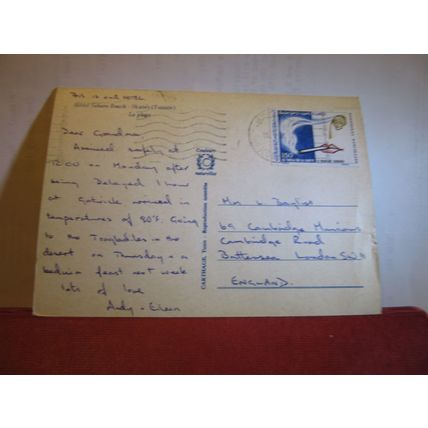 This is our HOTEL
Hôtel Tabarka Beach - Skanès (Tunisie)
La plage
Dear Grandma
Arrived safely at
12.00 on Monday after
being Delayed 1 hour
at Gatwick arrived in
temperatures of 80's. Going
to the Troglodites in the
desert on Thursday + a
beduin feast next week
lots of love
Andy + Eileen
Couleurs
naturelles
CARTHAGE, Tunis - Reproduction interdite
Mrs L
69 Cambridge Mansions
Cambridge Road
Battersea London SW11
ENGLAND.